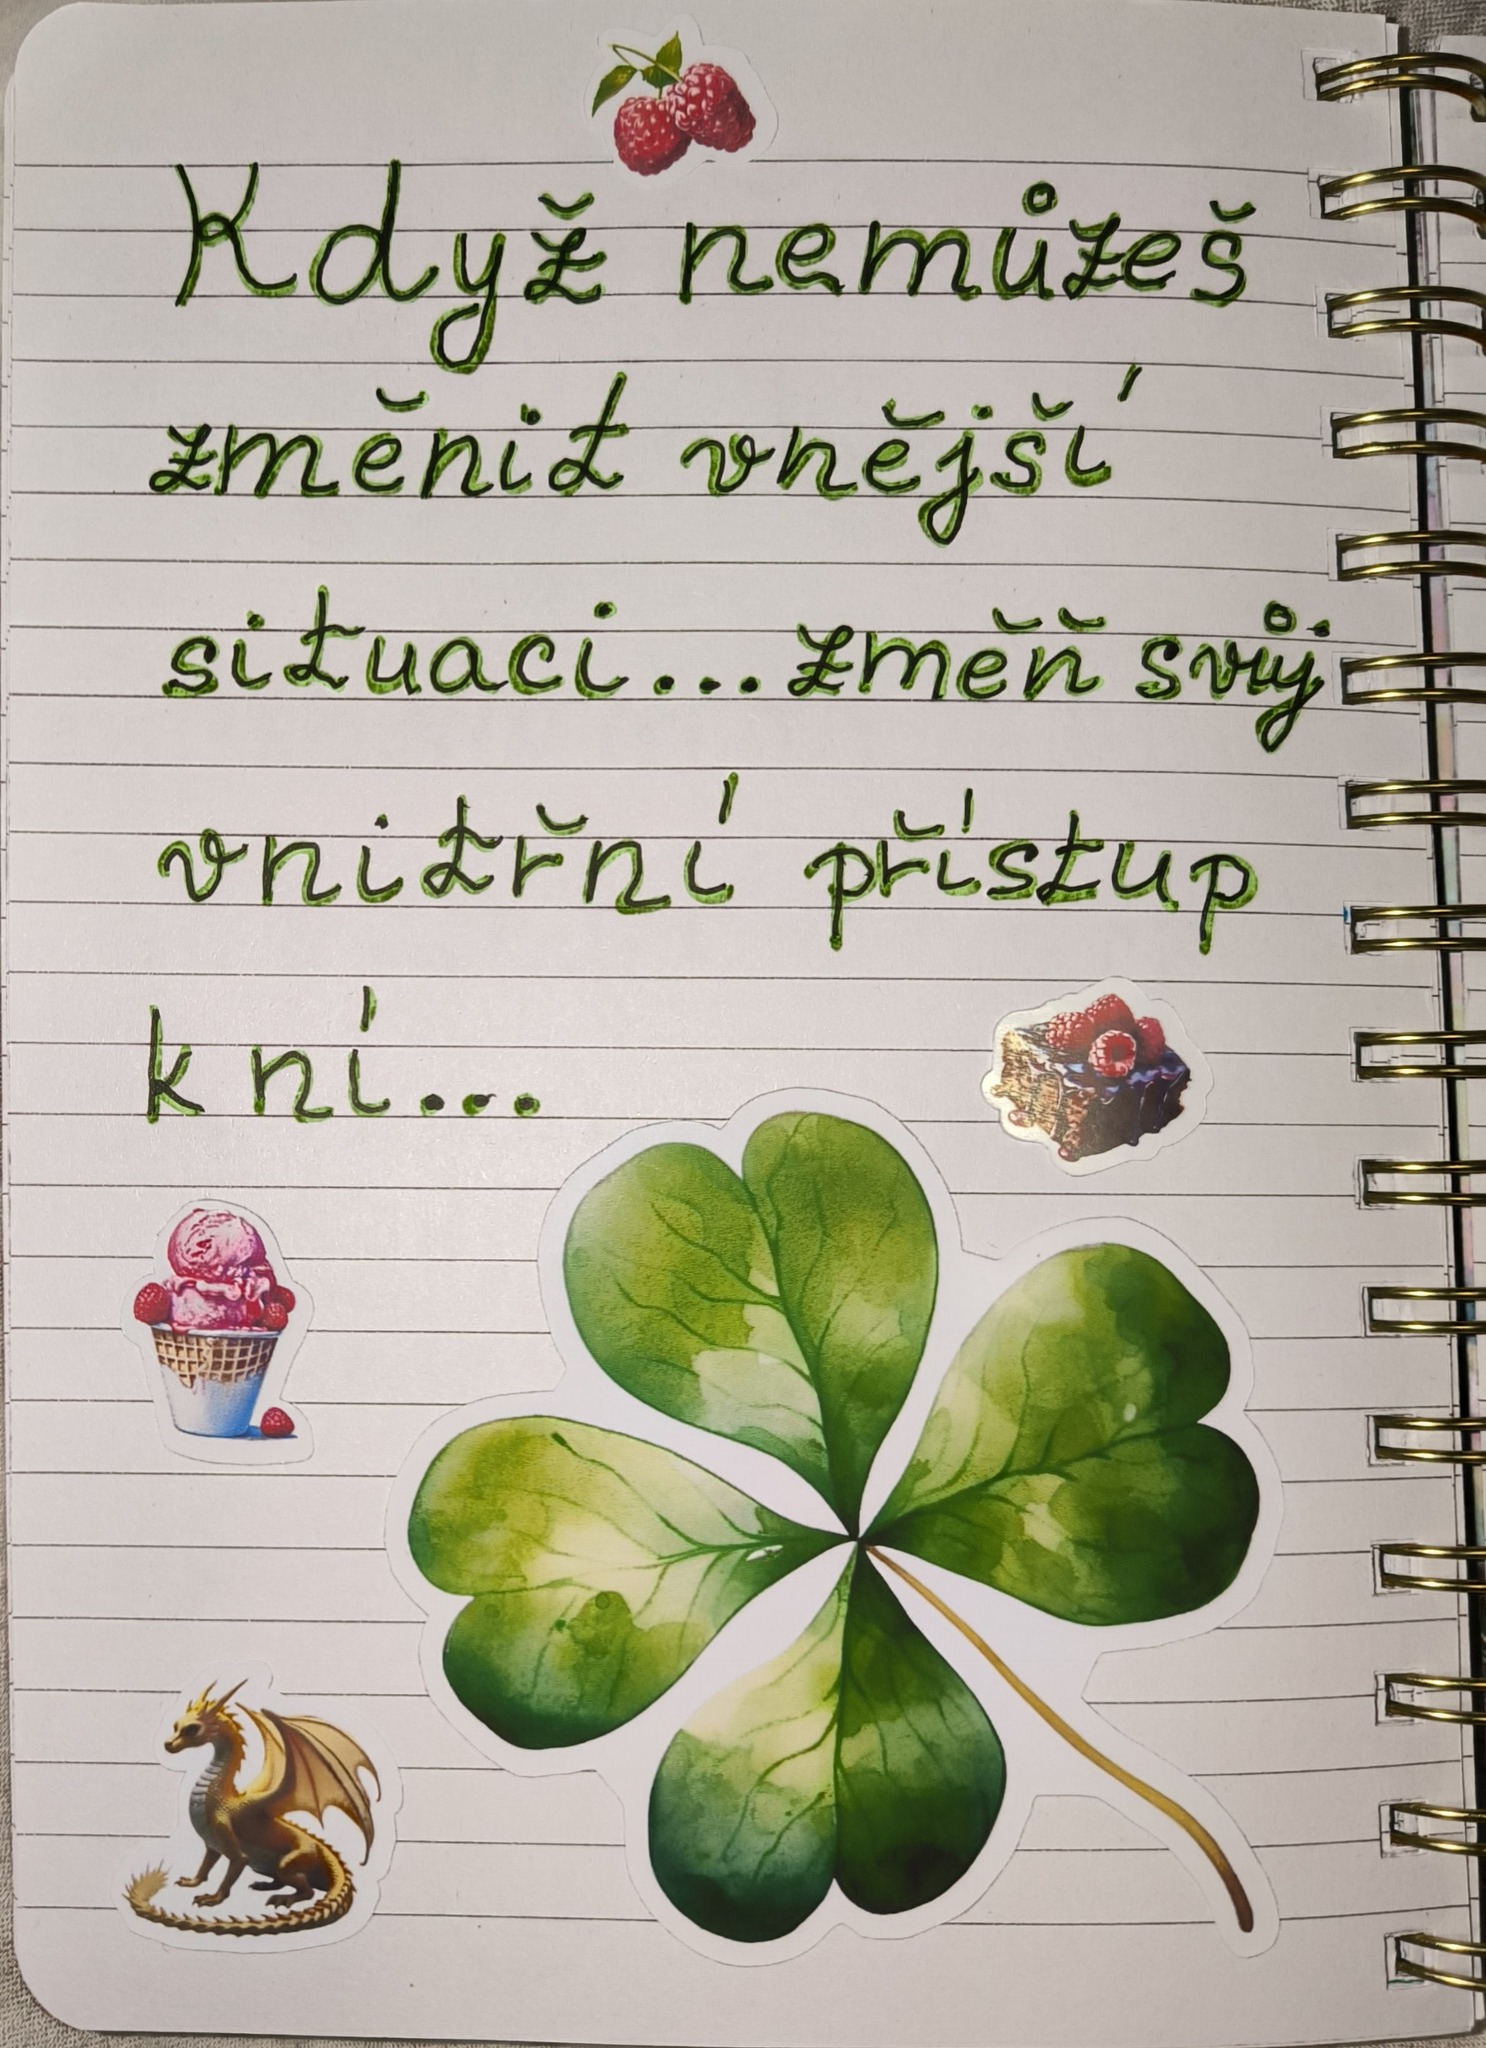 Když nemůžeš
změnit vnější
situaci... změň svůj
vnitřní přístup
k ní...